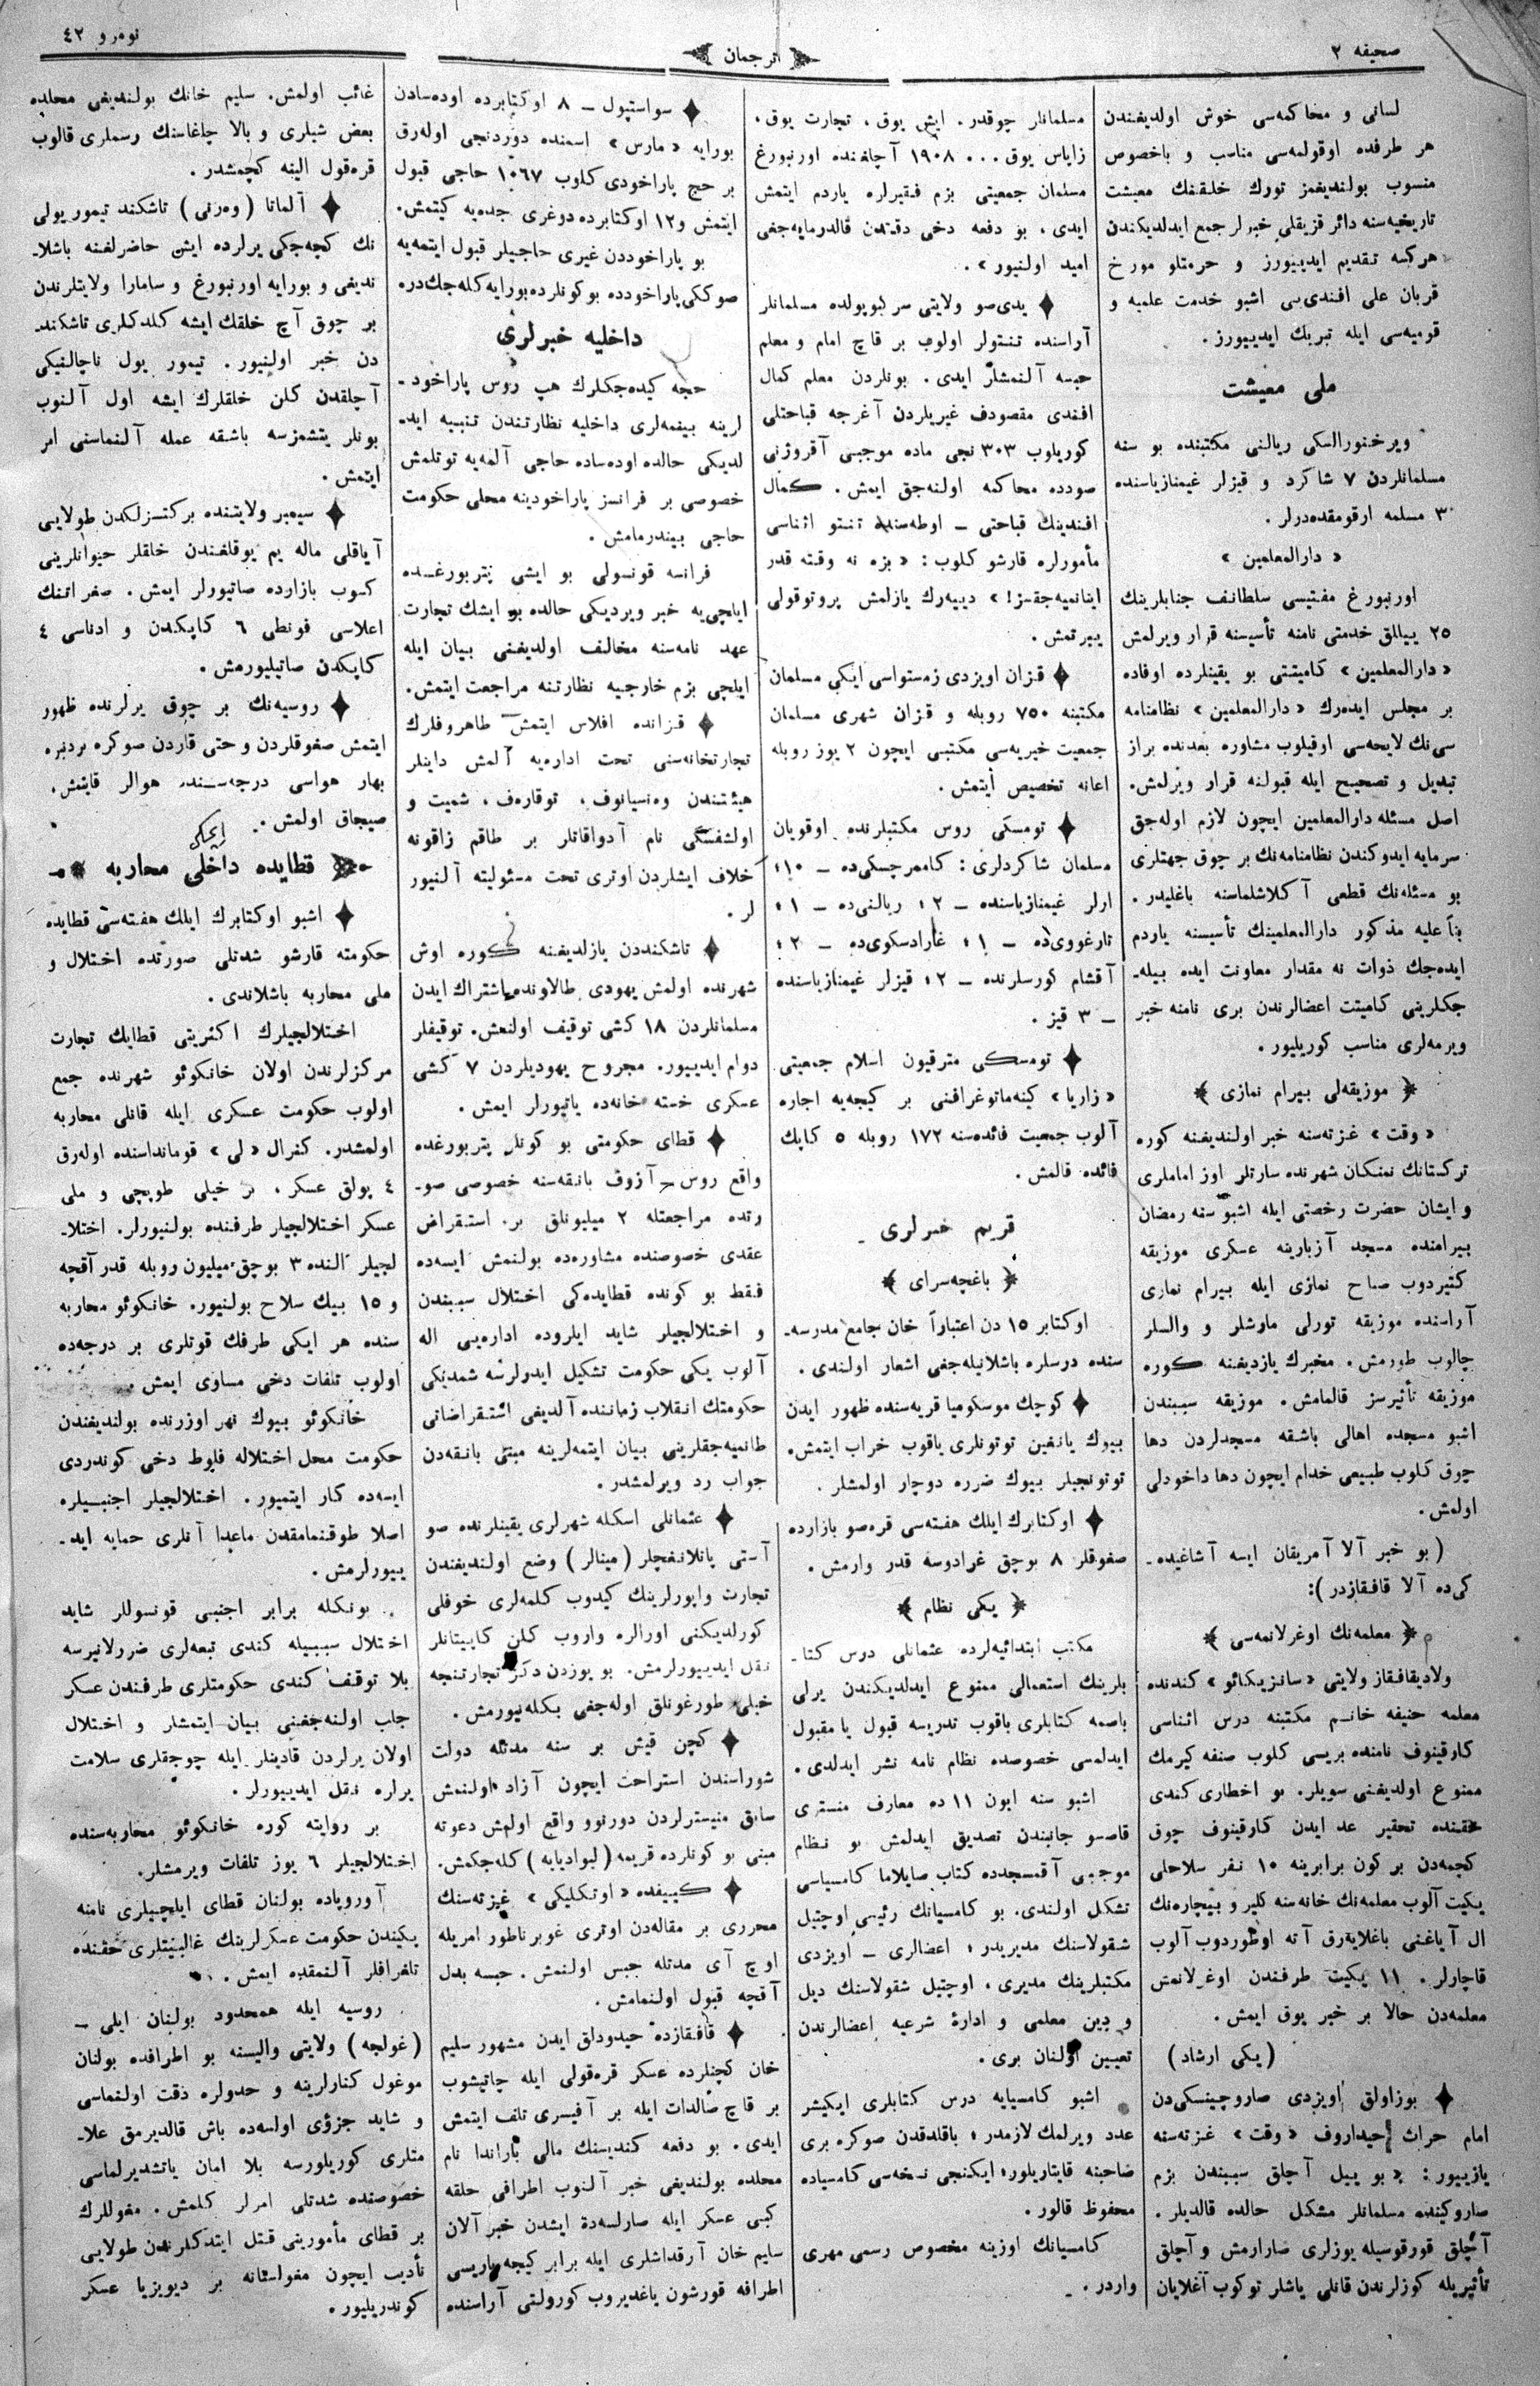 صحیفه ٢
ترجمان
نومرو ٤٢
لسانی و محاکمه‌سی خوش اولدیغندن
هر طرفده اوقولمه‌سی مناسب و باخصوص
منسوب بولندیغمز تورك خلقنك معیشت
تاریخیه‌سنه دائر قزیقلی خبرلر جمع ایدلدیکندن
هرکسه تقدیم ایدییورز و حرمتلو مورخ
قربان علی افندی‌یی اشبو خدمت علمیه و
قومیه‌سی ایله تبریك ایدییورز.
ملی معیشت
ویرخنورالسکی ریالنی مکتبنده بو سنه
مسلمانلردن ٧ شاکرد و قیزلر غیمنازیاسنده
٣ مسلمه اوقومقده‌درلر.
« دارالمعلمین »
اورنبورغ مفتیسی سلطانف جنابلرینك
٢٥ ییللق خدمتی نامنه تأسیسنه قرار ویرلمش
« دارالمعلمین » کامیتتی بو یقینلرده اوفاده
بر مجلس ایده‌رك « دارالمعلمین » نظامنامه
سی‌نك لایحه‌سی اوقیلوب مشاوره بعدنده براز
تبدیل و تصحیح ایله قبولنه قرار ویرلمش.
اصل مسئله دارالمعلمین ایچون لازم اوله‌جق
سرمایه ایدوکندن نظامنامه‌نك بر چوق جهتلری
بو مسئله‌نك قطعی آکلاشلماسنه باغلیدر.
بناً علیه مذکور دارالمعلمینك تأسیسنه یاردم
ایده‌جك ذوات نه مقدار معاونت ایده بیله‌ـ
جکلرینی کامیتت اعضالرندن بری نامنه خبر
ویرمه‌لری مناسب کوریلیور.
موزیقه‌لی بیرام نمازی
« وقت » غزته‌سنه خبر اولندیغنه کوره
ترکستانك نمنکان شهرنده سارتلر اوز اماملری
و ایشان حضرت رخصتی ایله اشبو سنه رمضان
بیرامنده مسجد آزبارینه عسکری موزیقه
کتیردوب صباح نمازی ایله بیرام نمازی
آراسنده موزیقه تورلی مارشلر و والسلر
چالوب طورمش. مخبرك یازدیغنه کوره
موزیقه تأثیرسز قالمامش. موزیقه سببندن
اشبو مسجده اهالی باشقه مسجدلردن دها
چوق کلوب طبیعی خدام ایچون دها داخودلی
اولمش.
( بو خبر آلا آمریقان ایسه آشاغیده‌ـ
کی‌ده آلا قافقازدر ):
معلمه‌نك اوغرلانمه‌سی
ولادیقافقاز ولایتی « سانزیکائو » کندنده
معلمه حنیفه خانم مکتبنه درس اثناسی
کارقینوف نامنده بریسی کلوب صنفه کیرمك
ممنوع اولدیغنی سویلر. بو اخطاری کندی
حقنده تحقیر عد ایدن کارقینوف چوق
کچمه‌دن بر کون برابرینه ١٠ نفر سلاحلی
یکیت آلوب معلمه‌نك خانه‌سنه کلیر و بیچاره‌نك
ال آیاغنی باغلایه‌رق آته اوطوردوب آلوب
قاچارلر. ١١ یکیت طرفندن اوغرلانمش
معلمه‌دن حالا بر خبر یوق ایمش.
( یکی ارشاد )
بوزاولق اویزدی صاروچینسکی‌دن
امام حراث حیداروف « وقت » غزته‌سنه
یازییور: « بو ییل آچلق سببندن بزم
صاروکینده مسلمانلر مشکل حالده قالدیلر.
آچلق قورقوسیله یوزلری صارارمش و آچلق
تأثیریله کوزلرندن قانلی یاشلر توکوب آغلایان
مسلمانلر چوقدر. ایش یوق، تجارت یوق،
زایاس یوق... ١٩٠٨ آچلغنده اورنبورغ
مسلمان جمعیتی بزم فقیرلره یاردم ایتمش
ایدی، بو دفعه دخی دقتدن قالدرمایه‌جغی
امید اولنیور ».
یدی‌صو ولایتی سرکیوپولده مسلمانلر
آراسنده تنتولر اولوب بر قاچ امام و معلم
حبسه آلنمشلر ایدی. بونلردن معلم کمال
افندی مقصودف غیریلردن آغرجه قباحتلی
کوریلوب ٣٠٣ نجی ماده موجبی آقروژنی
صودده محاکمه اولنه‌جق ایمش. کمال
افندینك قباحتی ـ اوطه‌سنده تنتو اثناسی
مأمورلره قارشو کلوب: « بزه نه وقته قدر
اینانمیه‌جقسز! » دییه‌رك یازلمش پروتوقولی
ییرتمش.
قزان اویزدی زمستواسی ایکی مسلمان
مکتبنه ٧٥٠ روبله و قزان شهری مسلمان
جمعیت خیریه‌سی مکتبی ایچون ٢ یوز روبله
اعانه تخصیص ایتمش.
تومسکی روس مکتبلرنده اوقویان
مسلمان شاکردلری: کاممرچسکی‌ده ـ ١٠؛
ارلر غیمنازیاسنده ـ ٢؛ ریالنی‌ده ـ ١؛
تارغووی‌ده ـ ١؛ غارادسکوی‌ده ـ ٢؛
آقشام کورسلرنده ـ ٢؛ قیزلر غیمنازیاسنده
ـ ٣ قیز.
تومسکی مترقیون اسلام جمعیتی
« زاریا » کینه‌ماتوغرافنی بر کیجه‌یه اجاره
آلوب جمعیت فائده‌سنه ١٧٢ روبله ٥ کاپك
فائده قالمش.
قریم خبرلری
باغچه‌سرای
اوکتابر ١٥ دن اعتباراً خان جامع مدرسه‌ـ
سنده درسلره باشلانیله‌جغی اشعار اولندی.
کوچك موسکومیا قریه‌سنده ظهور ایدن
بیوك یانغین توتونلری یاقوب خراب ایتمش.
توتونجیلر بیوك ضرره دوچار اولمشلر.
اوکتابرك ایلك هفته‌سی قره‌صو بازارده
صغوقلر ٨ بوچق غرادوسه قدر وارمش.
یکی نظام
مکتب ابتدائیه‌لرده عثمانلی درس کتا ـ
بلرینك استعمالی ممنوع ایدلدیکندن یرلی
باصمه کتابلری باقوب تدریسه قبول یا مقبول
ایدلمسی خصوصده نظام نامه نشر ایدلدی.
اشبو سنه ایون ١١ ده معارف منستری
قاصسو جانبندن تصدیق ایدلمش بو نظام
موجبی آقمسجدده کتاب صایلاما کامسیاسی
تشکل اولندی. بو کامسیانك رئیسی اوچتیل
شقولاسنك مدیریدر؛ اعضالری ـ اویزدی
مکتبلرینك مدیری، اوچتیل شقولاسنك دیل
و دین معلمی و ادارۀ شرعیه اعضالرندن
تعیین اولنان بری.
اشبو کامسیایه درس کتابلری ایکیشر
عدد ویرلمك لازمدر؛ باقلدقدن صوکره بری
صاحبنه قایتاریلور؛ ایکنجی نسخه‌سی کامسیاده
محفوظ قالور.
کامسیانك اوزینه مخصوص رسمی مهری
واردر.
سواستپول ـ ٨ اوکتابرده اوده‌سادن
بورایه « مارس » اسمنده دوردنجی اوله‌رق
بر حج پاراخودی کلوب ١٠٦٧ حاجی قبول
ایتمش و ١٢ اوکتابرده دوغری جده‌یه کیتمش.
بو پاراخوددن غیری حاجیلر قبول ایتمه‌یه
صوککی پاراخودده بو کونلرده بورایه کله‌جك‌دره
داخلیه خبرلری
حجه کیده‌جکلرك هپ روس پاراخود ـ
لرینه بینمه‌لری داخلیه نظارتندن تنبیه اید ـ
لدیکی حالده اوده‌ساده حاجی آلمه‌یه توتلمش
خصوصی بر فرانسز پاراخودینه محلی حکومت
حاجی بیندرمامش.
فرانسه قونسولی بو ایشی پتربورغده
ایلچی‌یه خبر ویردیکی حالده بو ایشك تجارت
عهد نامه‌سنه مخالف اولدیغنی بیان ایله
ایلچی بزم خارجیه نظارتنه مراجعت ایتمش.
قزانده افلاس ایتمش طاهروفلرك
تجارتخانه‌سنی تحت اداره‌یه آلمش داینلر
هیئتندن وه‌نسیانوف، توقاره‌ف، شمیت و
اولشفسکی نام آدواقاتلر بر طاقم زاقونه
خلاف ایشلردن اوتری تحت مسئولیته آلنیور
لر.
تاشکنددن یازلدیغنه کوره اوش
شهرنده اولمش یهودی طالاونده اشتراك ایدن
مسلمانلردن ١٨ کشی توقیف اولنمش. توقیفلر
دوام ایدییور. مجروح یهودیلردن ٧ کشی
عسکری خسته خانه‌ده یاتیورلر ایمش.
قطای حکومتی بو کونلر پتربورغده
واقع روس ـ آزوف بانقه‌سنه خصوصی صو ـ
رتده مراجعتله ٢ میلیونلق بر. استقراض
عقدی خصوصنده مشاوره‌ده بولنمش ایسه‌ده
فقط بو کونده قطایده‌کی اختلال سببندن
و اختلالجیلر شاید ایلروده اداره‌یی اله
آلوب یکی حکومت تشکیل ایدولرسه شمدیکی
حکومتك انقلاب زماننده آلدیغی استقراضاتی
طانمیه‌جقلرینی بیان ایتمه‌لرینه مبنی بانقه‌دن
جواب رد ویرلمشدر.
عثمانلی اسکله شهرلری یقینلرنده صو
آستی پاتلانغچلر ( مینالر ) وضع اولندیغندن
تجارت واپورلرینك کیدوب کلمه‌لری خوفلی
کورلدیکنی اورالره واروب کلن کاپیتانلر
نقل ایدییورلرمش. بو یوزدن دکز تجارتنجه
خیلی طورغونلق اوله‌جغی بکله‌نیورمش.
کچن قیش بر سنه مدتله دولت
شوراسندن استراحت ایچون آزاد اولنمش
سابق منیسترلردن دورنوو واقع اولمش دعوته
مبنی بو کونلرده قریمه ( لیوادیایه ) کله‌جکمش.
کییفده « اوتکلیکی » غزته‌سنك
محرری بر مقاله‌دن اوتری غوبرناطور امریله
اوچ آی مدتله حبس اولنمش. حبسه بدل
آقچه قبول اولنمامش.
قافقازده حیدودلق ایدن مشهور سلیم
خان کچنلرده عسکر قره‌قولی ایله چاتیشوب
بر قاچ صالدات ایله بر آفیسری تلف ایتمش
ایدی. بو دفعه کندیسنك مالی باراندا نام
محلده بولندیغی خبر آلنوب اطرافی حلقه
کبی عسکر ایله صارلسه‌ده ایشدن خبر آلان
سلیم خان آرقداشلری ایله برابر کیجه یاریسی
اطرافه قورشون یاغدیروب کورولتی آراسنده
غائب اولمش. سلیم خانك بولندیغی محلده
بعض شیلری و بالا چاغاسنك رسملری قالوب
قره‌قول الینه کچمشدر.
آلماتا ( وه‌رنی ) تاشکند تیمور یولی
نك کچه‌جکی یرلرده ایش حاضرلغنه باشلا ـ
ندیغی و بورایه اورنبورغ و سامارا ولایتلرندن
بر چوق آچ خلقك ایشه کلدکلری تاشکند ـ
دن خبر اولنیور. تیمور یول ناچالنیکی
آچلقدن کلن خلقلرك ایشه اول آلنوب
بونلر یتشمزسه باشقه عمله آلنماسنی امر
ایتمش.
سیمبر ولایتنده برکتسزلکدن طولایی
آیاقلی ماله یم یوقلغندن خلقلر حیوانلرینی
کسوب بازارده صاتیورلر ایمش. صغر اتنك
اعلاسی فونطی ٦ کاپکدن و ادناسی ٤
کاپکدن صاتیلیورمش.
روسیه‌نك بر چوق یرلرنده ظهور
ایتمش صغوقلردن و حتی قاردن صوکره بردنبره
بهار هواسی درجه‌سنده هوالر قایتمش،
صیجاق اولمش.
قطایده داخلی محاربه
اشبو اوکتابرك ایلك هفته‌سی قطایده
حکومته قارشو شدتلی صورتده اختلال و
ملی محاربه باشلاندی.
اختلالجیلرك اکثریتی قطایك تجارت
مرکزلرندن اولان خانکوئو شهرنده جمع
اولوب حکومت عسکری ایله قانلی محاربه
اولمشدر. کنرال « لی » قومانداسنده اوله‌رق
٤ پولق عسکر، بر خیلی طوپچی و ملی
عسکر اختلالجیلر طرفنده بولنیورلر. اختلا ـ
لجیلر النده ٣ بوچق میلیون روبله قدر آقچه
و ١٥ بیك سلاح بولنیور. خانکوئو محاربه
سنده هر ایکی طرفك قوتلری بر درجه‌ده
اولوب تلفات دخی مساوی ایمش.
خانکوئو بیوك نهر اوزرنده بولندیغندن
حکومت محل اختلاله فلوط دخی کوندردی
ایسه‌ده کار ایتمیور. اختلالجیلر اجنبیلره
اصلا طوقنمامقدن ماعدا آنلری حمایه اید ـ
ییورلرمش.
بونکله برابر اجنبی قونسوللر شاید
اختلال سببیله کندی تبعه‌لری ضررلانیرسه
بلا توقف کندی حکومتلری طرفندن عسکر
جلب اولنه‌جغنی بیان ایتمشلر و اختلال
اولان یرلردن قادینلر ایله چوجقلری سلامت
یرلره نقل ایدییورلر.
بر روایته کوره خانکوئو محاربه‌سنده
اختلالجیلر ٦ یوز تلفات ویرمشلر.
آوروپاده بولنان قطای ایلچیلری نامنه
پکیندن حکومت عسکرلرینك غالبیتلری حقنده
تلغرافلر آلنمقده ایمش.
روسیه ایله همحدود بولنان ایلی ـ
( غولجه ) ولایتی والیسنه بو اطرافده بولنان
موغول کنارلرینه و حدولره دقت اولنماسی
و شاید جزؤی اولسه‌ده باش قالدیرمق علا ـ
متلری کوریلورسه بلا امان یاتشدیرلماسی
خصوصنده شدتلی امرلر کلمش. مغوللرك
بر قطای مأمورینی قتل ایتدکلرندن طولایی
تأدیب ایچون مغولستانه بر دیویزیا عسکر
کوندریلیور.